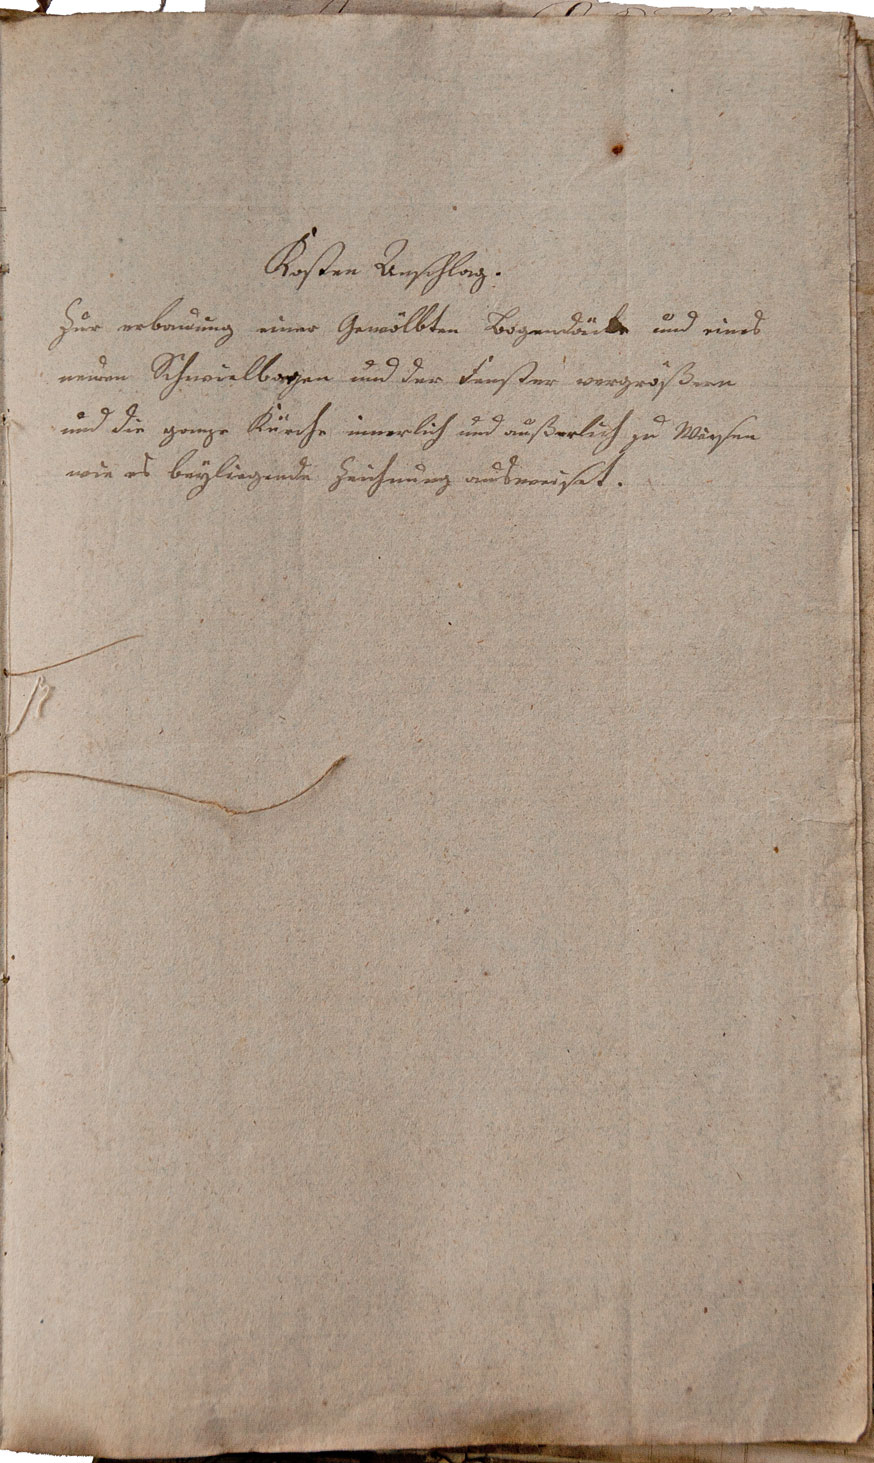 Kosten Anschlag.
Zur erbauung einer Gewölbten Bogendäcke und eines
neuen Schwielbogen und der Fenster vergrößern
und die ganze Kürche innerlich und außerlich zu Weysen
wie es beÿliegende Zeichnung ausweiset.